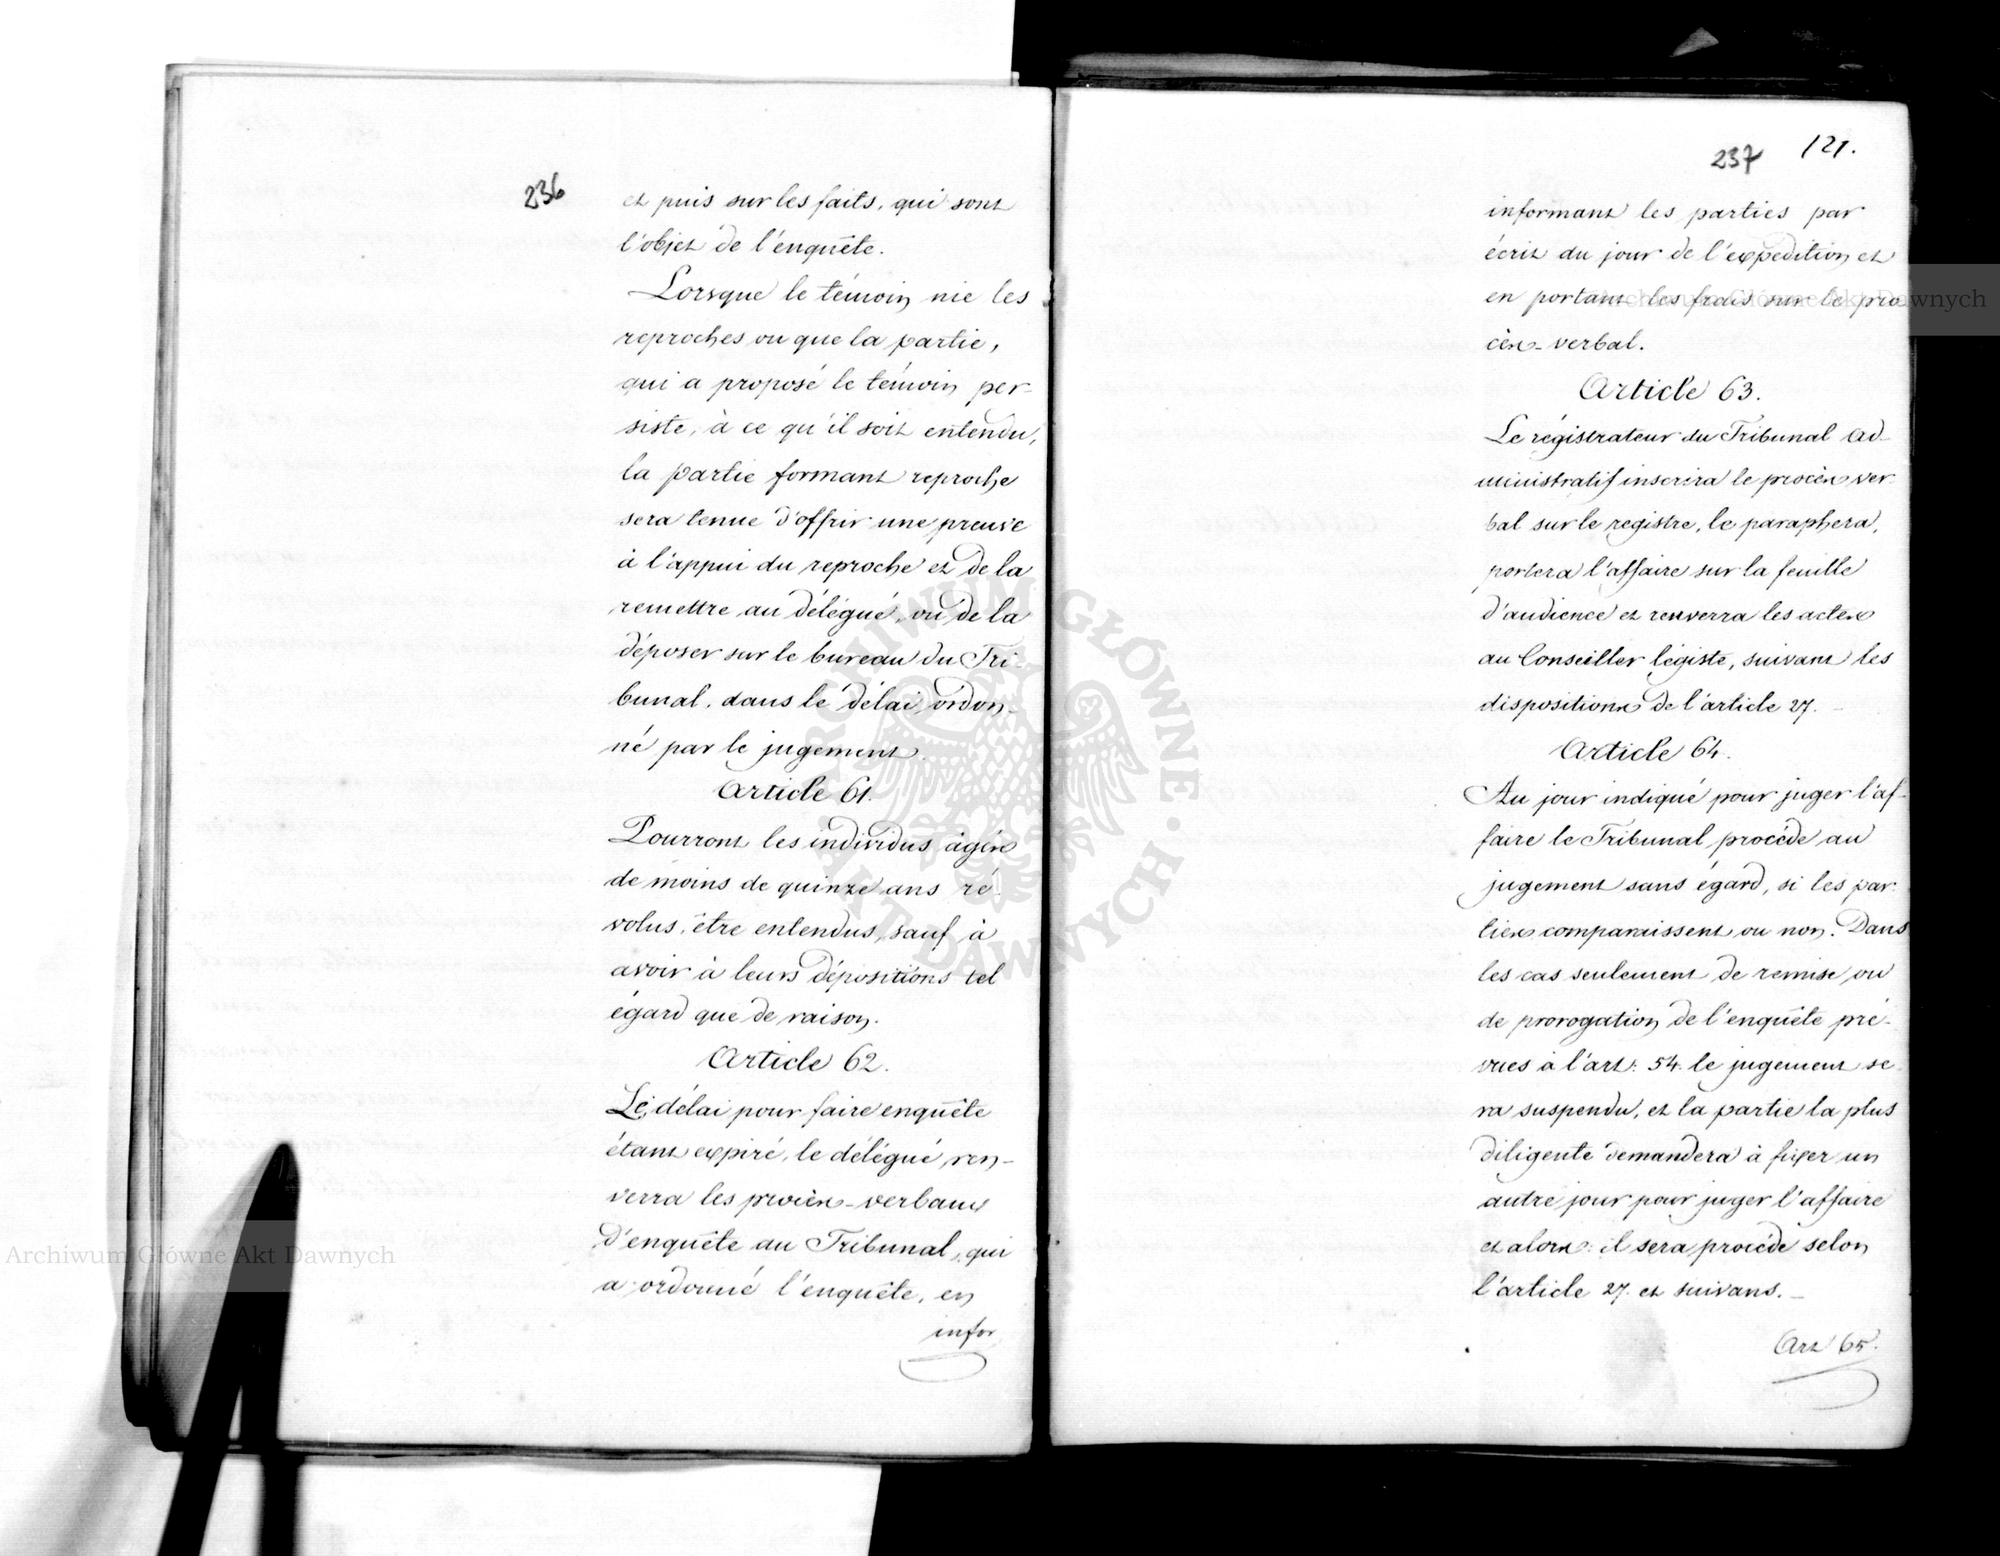 236
et puis sur les faits, qui sont
l'objet de l'enquête.
Lorsque le témoin nie les
reproches ou que la partie,
qui a proposé le témoin per-
siste, à ce qu'il soit entendu,
la partie formant reproche
sera tenue d'offrir une preuve
à l'appui du reproche et de la
remettre au délégué, ou de la
déposer sur le bureau du Tri-
bunal, dans le délai ordon-
né par le jugement.
Article 61.
Pourront les individus âgés
de moins de quinze ans ré-
volus, être entendus, sauf à
avoir à leurs dépositions tel
égard que de raison.
Article 62.
Le délai pour faire enquête
étant expiré, le délégué ren-
verra les procès-verbaux
d'enquête au Tribunal, qui
a ordonné l'enquête, en
infor
237 121.
informant les parties par
écrit du jour de l'expedition et
en portant les frais sur le pro
cès-verbal.
Article 63.
Le régistrateur du Tribunal ad-
ministratif inserira le procès ver-
bal sur le registre, le paraphera,
portera l'affaire sur la feuille
d'audience et renverra les actes
au Conseiller légiste, suivant les
dispositions de l'article 27. -
Article 64.
Au jour indiqué pour juger l'af-
faire le Tribunal procéde au
jugement sans égard, si les par-
ties comparaissent ou non. Dans
les cas seulement de remise ou
de prorogation de l'enquête pré-
vues à l'art: 54. le jugement se
ra suspendu, et la partie la plus
diligente demandera à fixer un
autre jour pour juger l'affaire
et alors il sera procédé selon
l'article 27. et suivans. -
Art 65.
Archiwum Główne Akt Dawnych
Archiwum Główne Akt Dawnych
ARCHIWUM GŁÓWNE AKT DAWNYCH